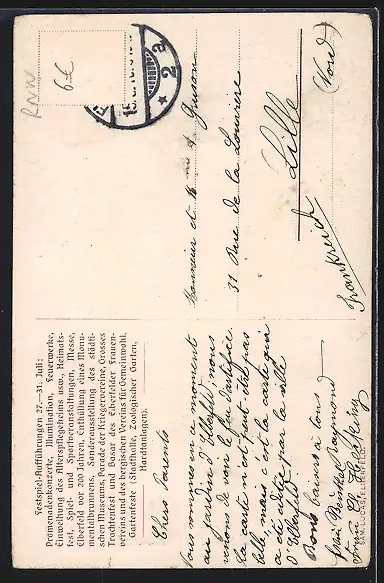 Festspiel-Aufführungen 27.—31. Juli:
Promenadenkonzerte, Illumination, Feuerwerke,
Einweihung des Alterspflegeheims usw., Heimats-
fest, Spiel- und Sportveranstaltungen, Messe,
Elberfeld vor 200 Jahren, Enthüllung eines Monu-
mentalbrunnens, Sonderausstellung des städti-
schen Museums, Parade der Kriegervereine, Grosses
Trachtenfest und Basar des Elberfelder Frauen-
vereins und des bergischen Vereins für Gemeinwohl.
Gartenfeste (Stadthalle, Zoologischer Garten,
Hardtanlagen).
Chers Parents
Nous sommes en ce moments
au jardin d'Elberfeld nous
venons de voir le feu d'artifice.
La carte n'est peut etre pas
belle mais c'est la carte qui
a été édité de la ville
d'Elberfeld
Bons baisers à tous
Raymond
SAM. LUCAS, ELBERFELD
Monsieur et
31 Rue de la Louvière
Lille
(Nord)
Frankreich
2 a
6€